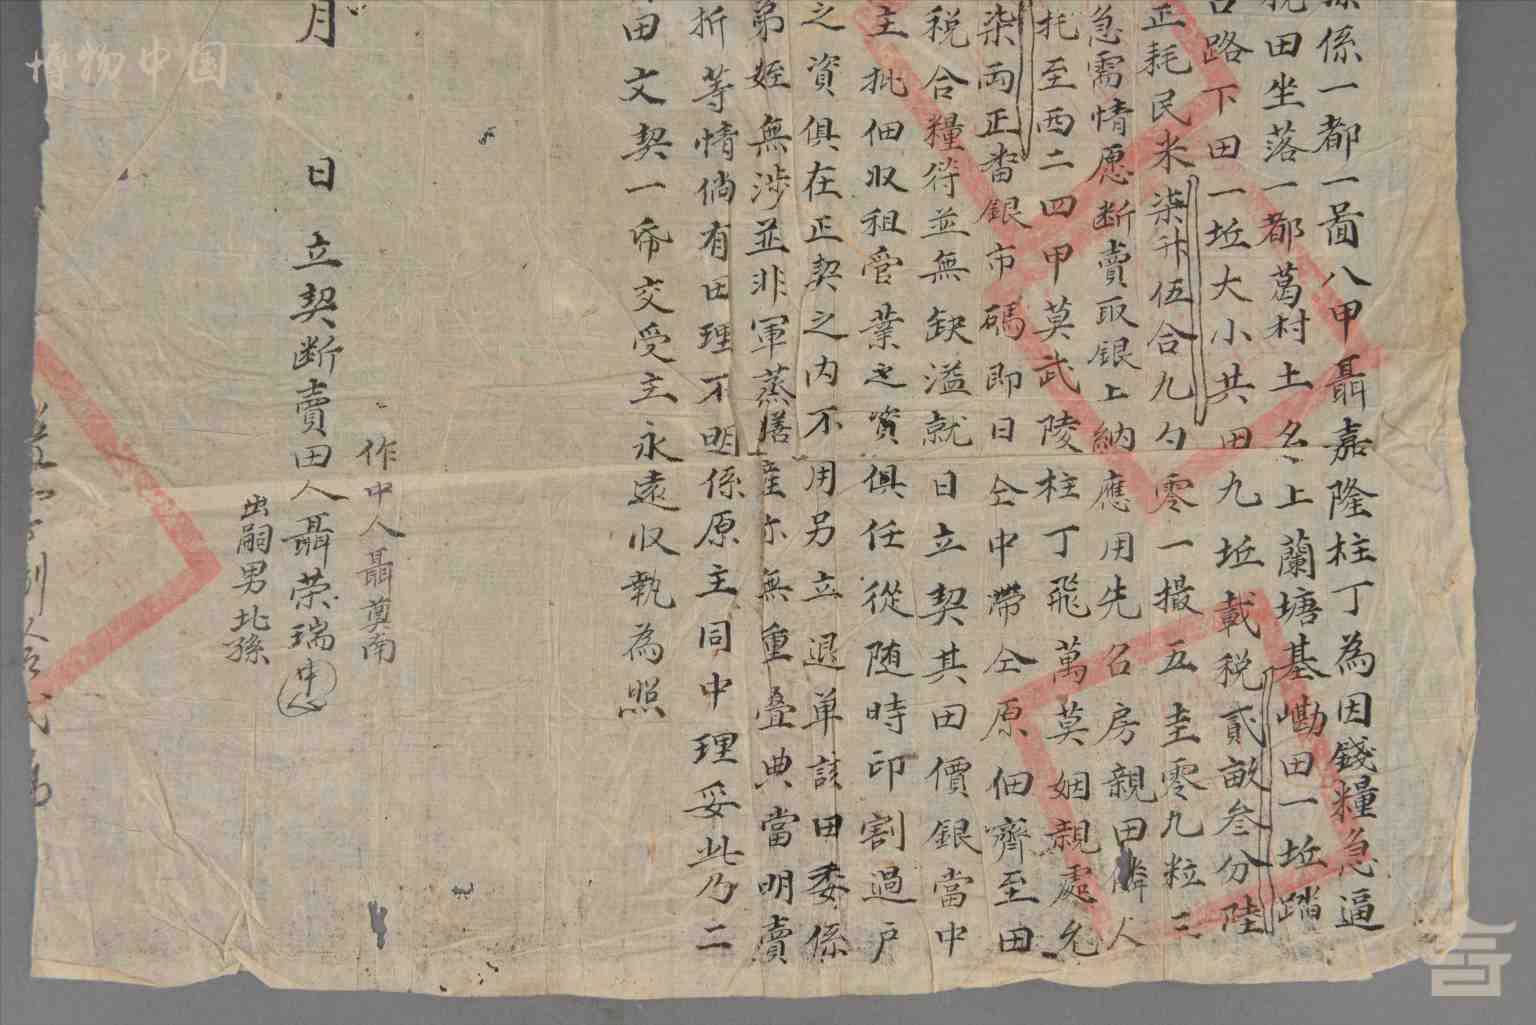 係一都一啚八甲聶嘉隆柱丁為因錢糧急逼
田坐落一都葛村土名上蘭塘基嘞田一坵踏
路下田一坵大小共田九坵載税貳畝叁分陸
正耗民米柒升伍合九勺零一撮五圭零九粒三
急需情愿断賣取銀上納應用先召房親田隣人
托至西二四甲莫武陵柱丁飛萬莫姻親處允
柒両正畨銀市碼即日仝中滯仝原佃齊至田
税合糧符並無缺溢就日立契其田價銀當中
主批佃收租管業之資俱任從随時印割過戸
之資俱在正契之内不用另立退单該田委係
弟姪無涉並非軍蒸膳産亦無重叠典當明賣
折等情倘有田理不明係原主同中理妥此乃二
田文契一帋交受主永遠收執為照
作中人聶奠南
月 日立契断賣田人聶荣瑞
出嗣男北孫
博物中国